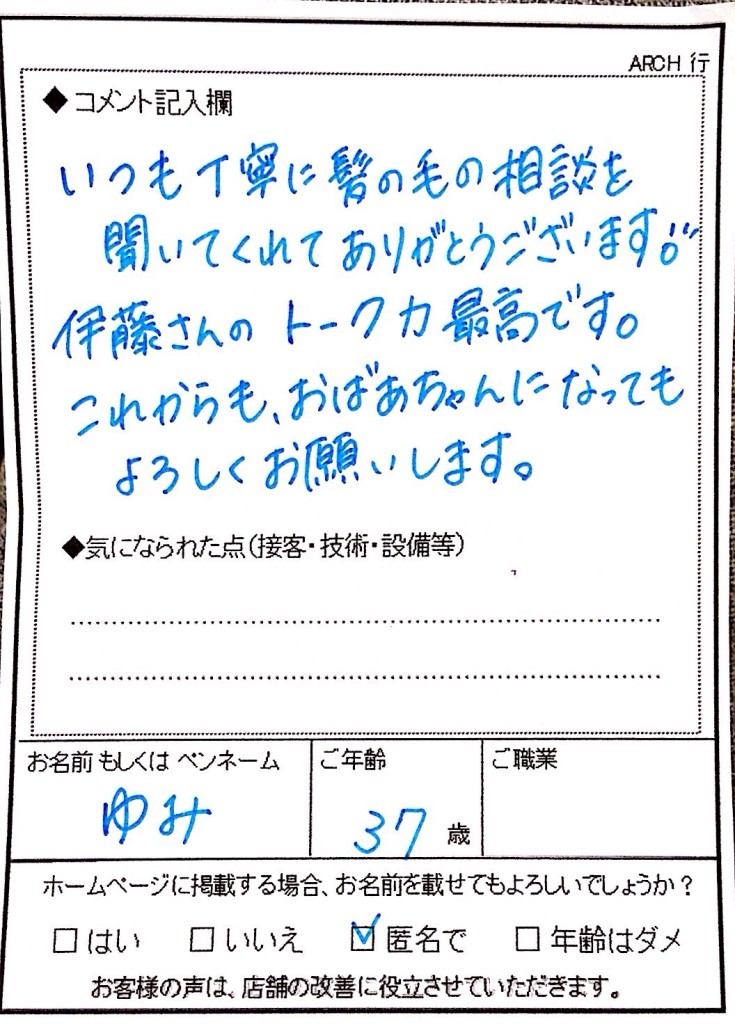 ARCH 行
◆ コメント記入欄
いつも丁寧に髪の毛の相談を
聞いてくれてありがとうございます。
伊藤さんのトーク力最高です。
これからも、おばあちゃんになっても
よろしくお願いします。
◆気になられた点(接客・技術・設備等)
お名前 もしくは ペンネーム ご年齢 ご職業
ゆみ 37 歳
ホームページに掲載する場合、お名前を載せてもよろしいでしょうか?
□ はい □ いいえ ☑ 匿名で □ 年齢はダメ
お客様の声は、店舗の改善に役立させていただきます。